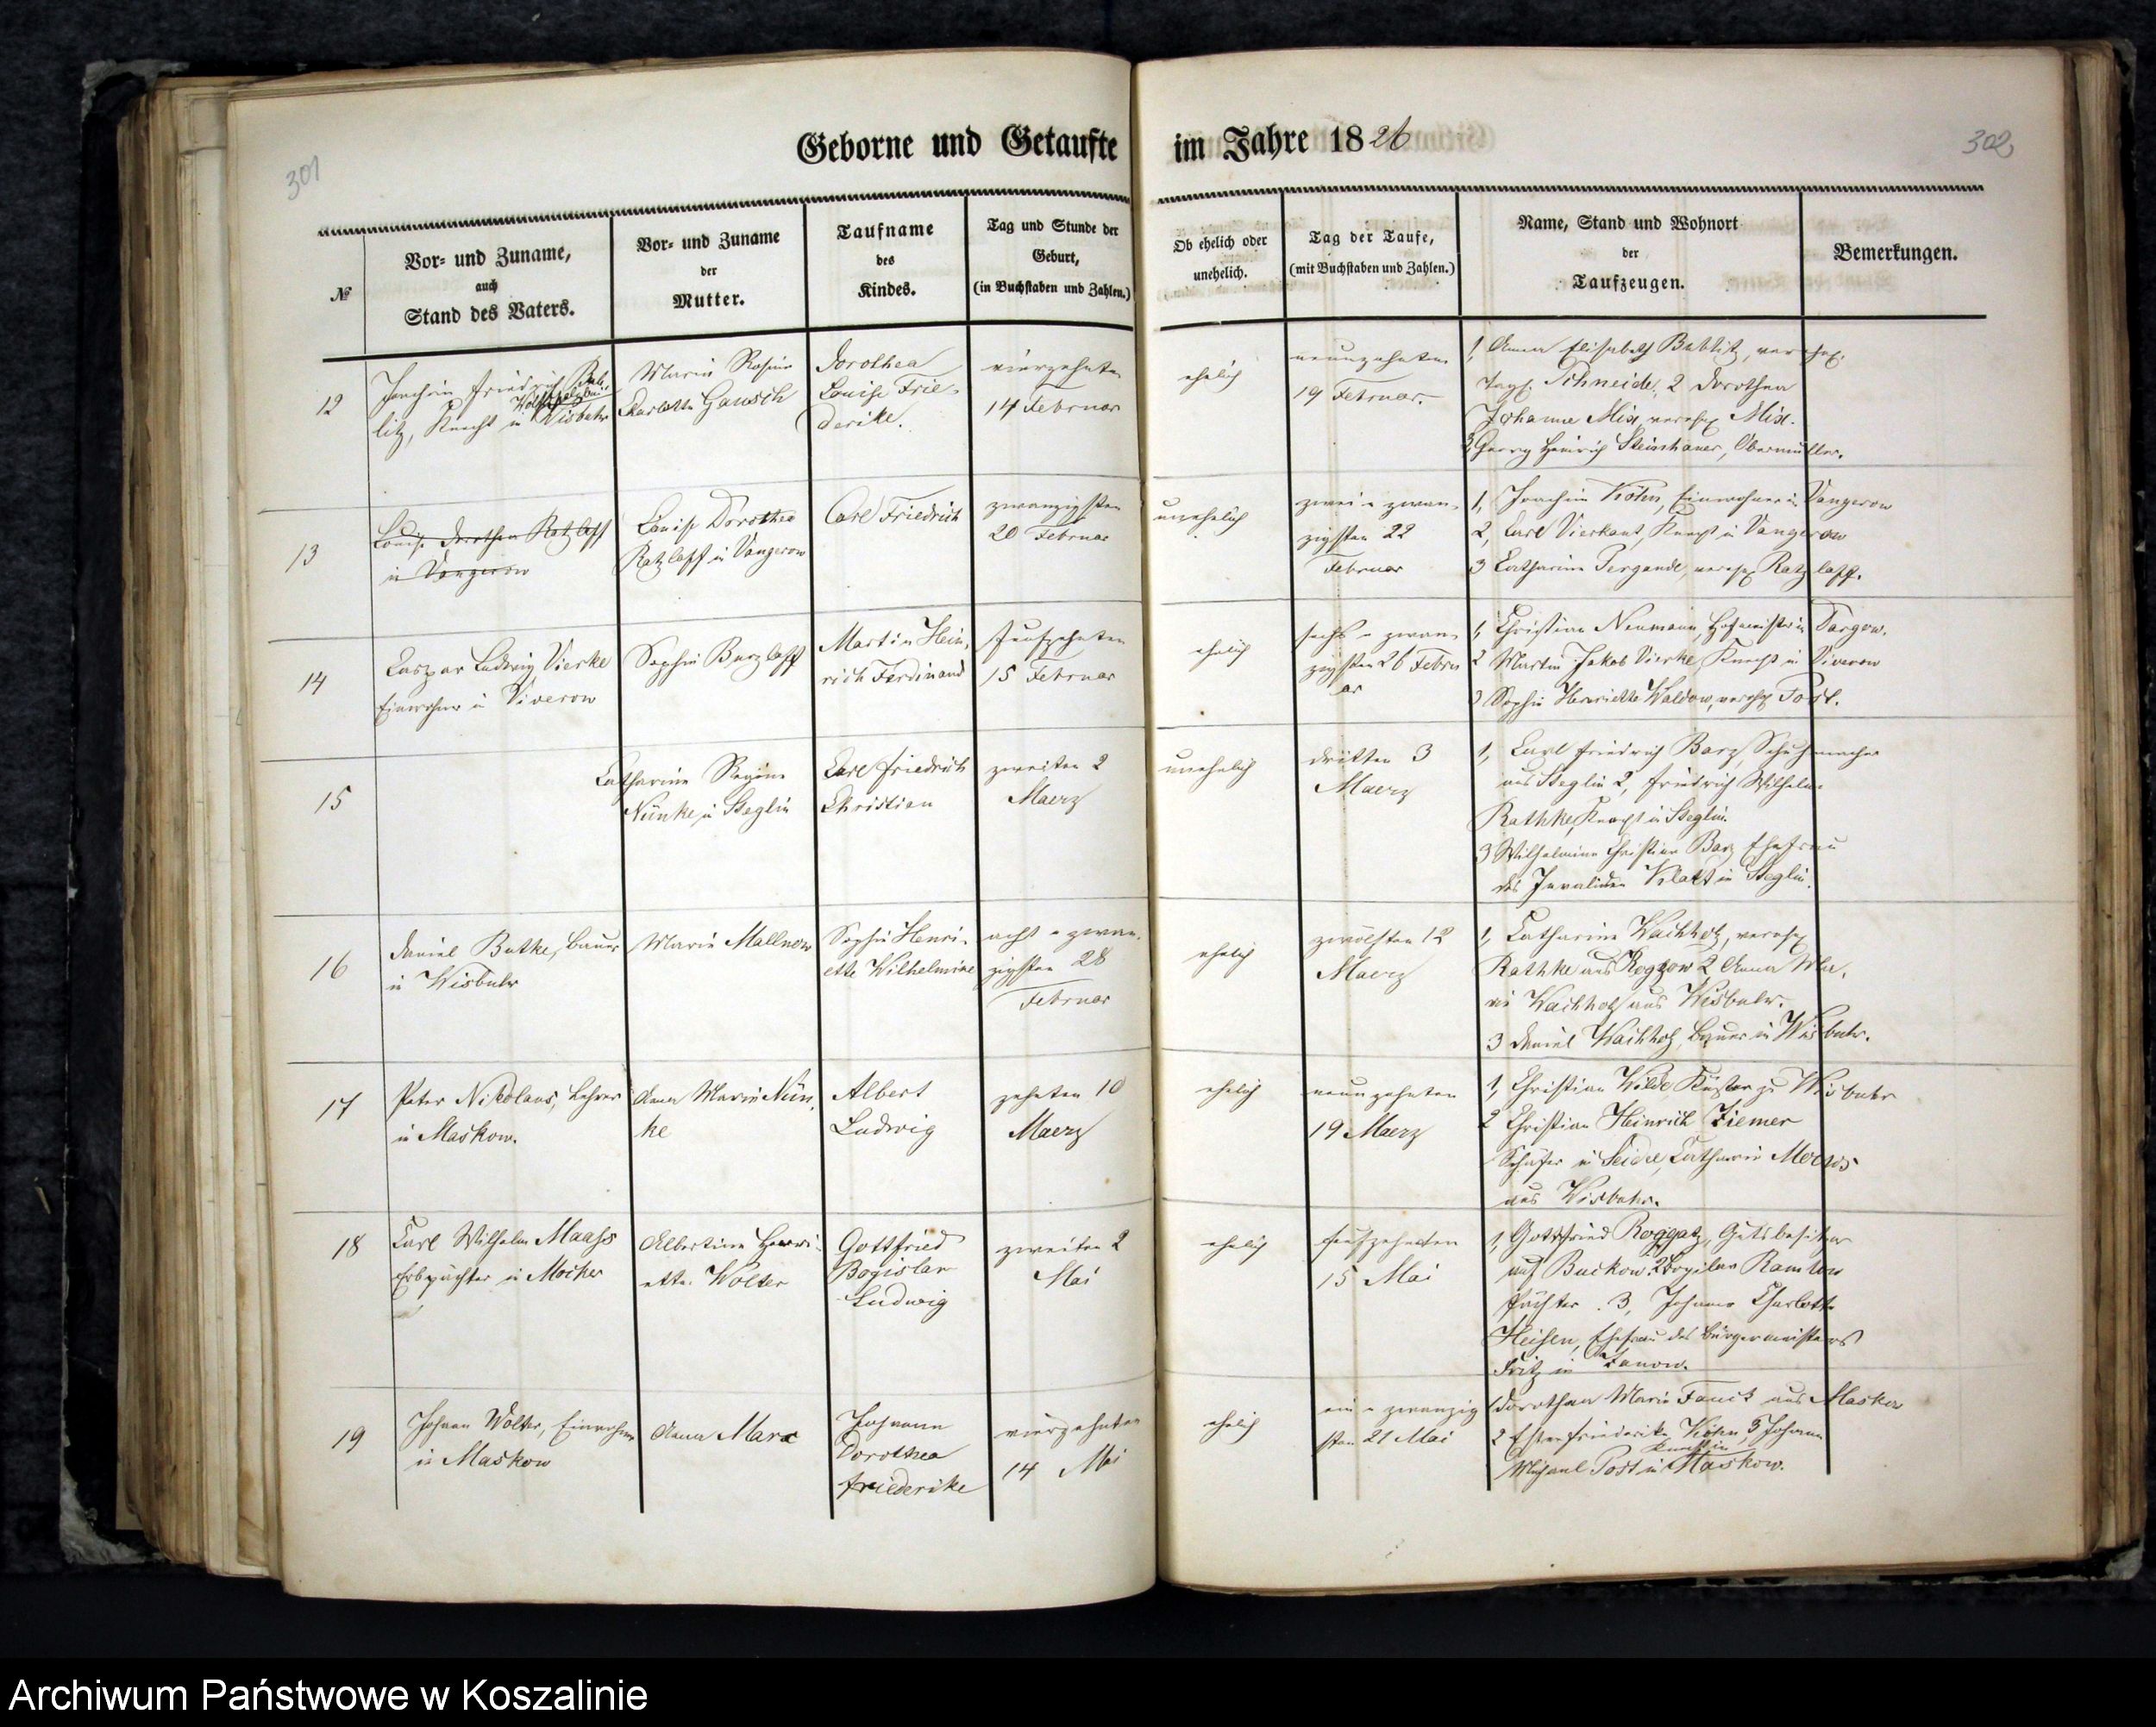 Geborne und Getaufte im Jahre 1826
301
302
№
Vor- und Zuname,
auch
Stand des Vaters.
Vor- und Zuname
der
Mutter.
Taufname
des
Kindes.
Tag und Stunde der
Geburt,
(in Buchstaben und Zahlen.)
Ob ehelich oder
unehelich.
Tag der Taufe,
(mit Buchstaben und Zahlen.)
Name, Stand und Wohnort
der
Taufzeugen.
Bemerkungen.
12
Joachim Friedrich Bub-
litz, Knecht in Wisbuhr
Marie Rosine
Charlotte Gausch
Dorothea
Louise Frie-
derike.
vierzehnten
14 Februar
ehelich
neunzehnten
19 Februar.
1, Anna Elisabeth Bublitz, verehe.
Schneider, 2 Dorothea
Johanne Mix, verehe Mix.
3 Georg Heinrich Steinhauer, Obermüller.
13
Louise Dorothea Ratzlaff
in Vangerow
Louise Dorothea
Ratzlaff in Vangerow
Carl Friedrich
zwanzigsten
20 Februar
unehelich
zwei u zwan-
zigsten 22
Februar
1, Joachim Köhn, Einwohner in Vangerow
2, Carl Vierkant, Knecht in Vangerow
3 Catharine Pergande, verehe Ratzlaff.
14
Caspar Ludwig Vierke
Einwohner in Viverow
Sophie Burzlaff
Martin Hein-
rich Ferdinand
funfzehnten
15 Februar
ehelich
sechs u zwan-
zigsten 26 Febru
ar
1, Christian Neumann, Hofmeister in Dargow.
2 Martin Jakob Vierke, Knecht in Viverow
3 Sophie Henriette Waldow, verehe Post.
15
Catharine Regine
Nünke in Steglin
Carl Friedrich
Christian
zweiten 2
Maerz
unehelich
dritten 3
Maerz
1, Carl Friedrich Barz, Schuhmacher
aus Steglin 2, Friedrich Wilhelm
Rathke, Knecht in Steglin.
3 Wilhelmine Christine Barz Ehefrau
des Invaliden Klatt in Steglin.
16
Daniel Butke, Bauer
in Wisbuhr
Marie Mallnow
Sophie Henri-
ette Wilhelmine
acht u zwan-
zigsten 28
Februar
ehelich
zwölften 12
Maerz
1, Catharine Wachholz, verehe
Rathke aus Rogzow 2 Anna Ma-
rie Wachholz aus Wisbuhr.
3 Daniel Wachholz, Bauer in Wisbuhr.
17
Peter Nikolaus, Lehrer
in Maskow.
Anna Marie Nün-
ke
Albert
Ludwig
zehnten 10
Maerz
ehelich
neunzehnten
19 Maerz
1, Christian Wilde Küster zu Wisbuhr
2 Christian Heinrich Ziemer
Schäfer in Seidel, Catharine
aus Wisbuhr.
18
Carl Wilhelm Maaſs
Erbpächter in Mocker
Albertine Henri-
ette Wolter
Gottfried
Bogislav
Ludwig
zweiten 2
Mai
ehelich
funfzehnten
15 Mai
1, Gottfried Roggatz, Gutsbesitzer
auf Buckow. 2 Bogislav Ramlow
Pächter. 3, Johanne Charlotte
Heisen, Ehefrau des Bürgermeisters
Fritz in Zanow.
19
Johann Wolter, Einwohner
in Maskow
Anna Marx
Johanne
Dorothea
Friederike
vierzehnten
14 Mai
ehelich
ein u zwanzig
sten 21 Mai
1 Dorothea Marie Fauck aus Maskow
2 Friederike Köhn, 3 Johann
Knecht in
Michael Post in Maskow.
Archiwum Państwowe w Koszalinie